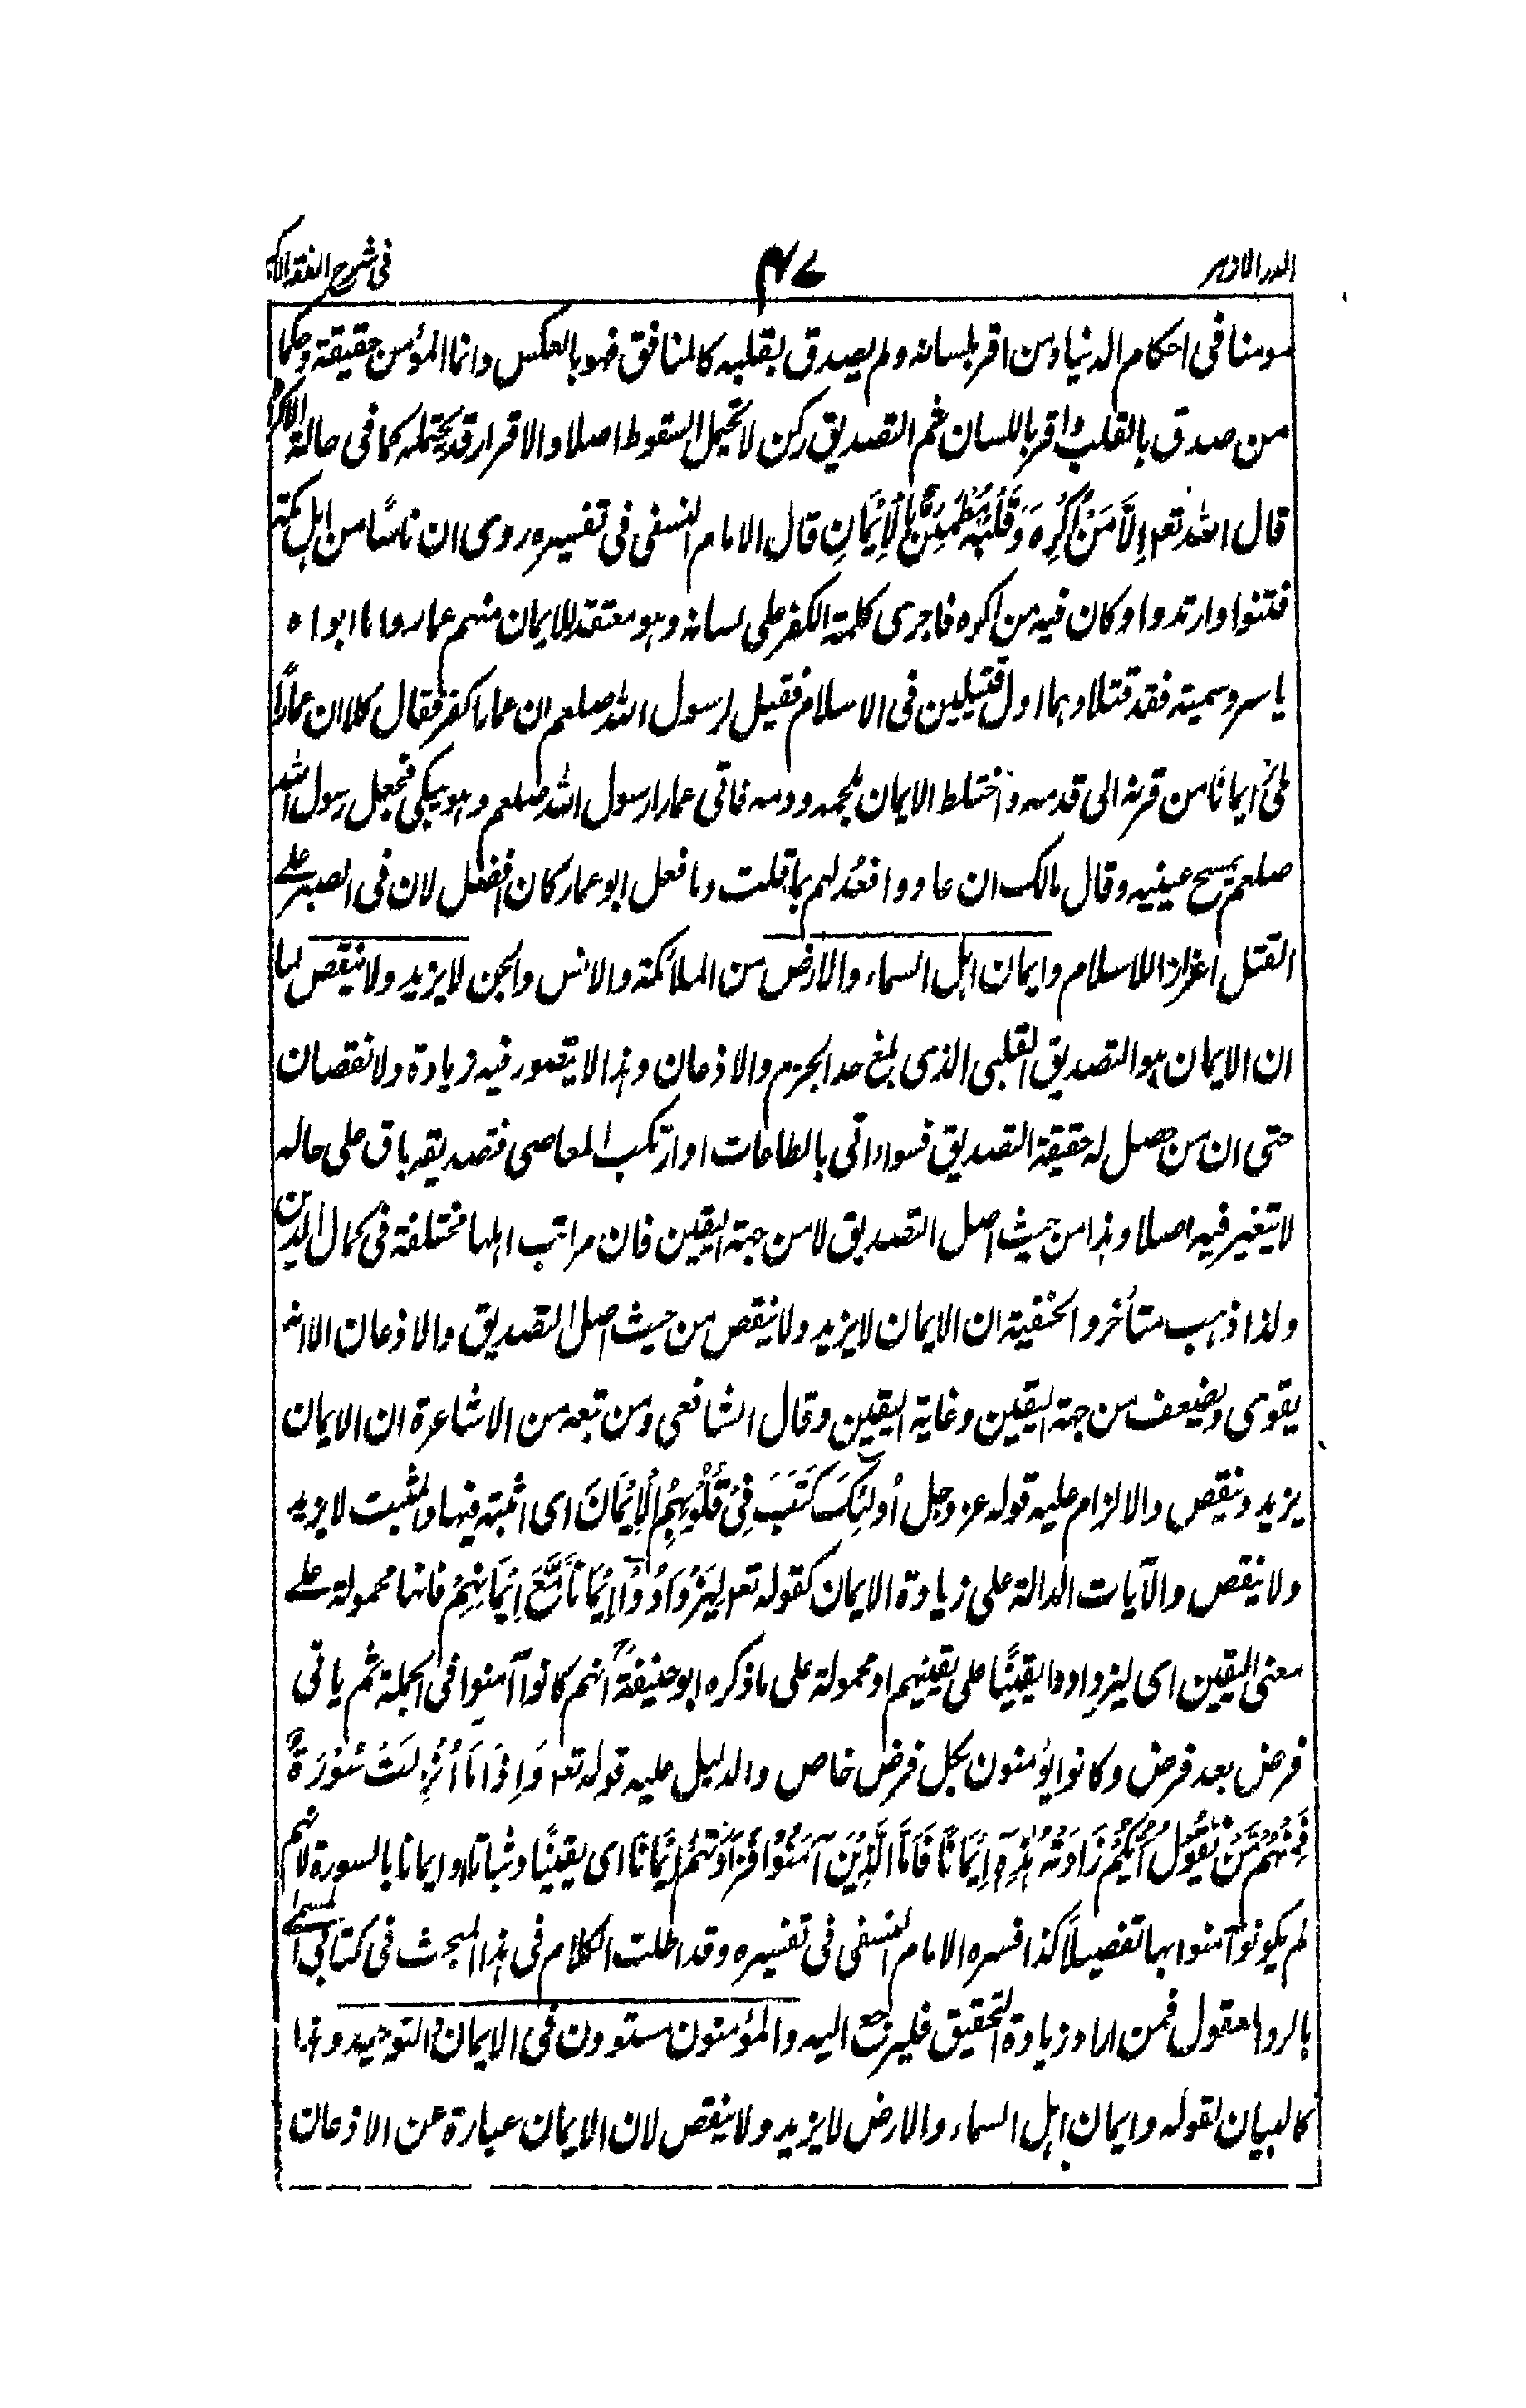 الدر الازہر ۴۷ فی شرح الفقہ الاکبر
مومنا فی احکام الدنیا ومن اقر بلسانہ ولم یصدق بقلبہ کالمنافق فہو بالعکس وانما المؤمن حقیقۃ وحکما
من صدق بالقلب واقر باللسان ثم التصدیق رکن لا یحتمل السقوط اصلا والاقرار قد یحتملہ کما فی حالۃ الاکراہ
قال اللہ تعہ اِلَّا مَنْ اُکْرِہَ وَقَلْبُہٗ مُطْمَئِنٌّ بِالْاِیْمَانِ قال الامام النسفی فی تفسیرہ روی ان ناسًا من اہل مکۃ
فتنوا وارتدوا وکان فیہ من اکرہ فاجری کلمۃ الکفر علی لسانہ وہو معتقد للایمان منہم عمار واما ابواہ
یاسر وسمیۃ فقد قتلا وہما اول قتیلین فی الاسلام فقیل لرسول اللہ صلعم ان عمارا کفر فقال کلا ان عمارًا
ملئ ایمانا من قرنہ الی قدمہ واختلط الایمان بلحمہ ودمہ فاتی عمار رسول اللہ صلعم وہو یبکی فجعل رسول اللہ
صلعم یمسح عینیہ وقال مالک ان عادوا فعُد لہم بما قلت وما فعل ابو عمار کان افضل لان فی الصبر علے
القتل اعزازا للاسلام وایمان اہل السماء والارض من الملائکۃ والانس والجن لا یزید ولا ینقص لما
ان الایمان ہو التصدیق القلبی الذی بلغ حد الجزم والاذعان وہذا لا یتصور فیہ زیادۃ ولا نقصان
حتی ان من حصل لہ حقیقۃ التصدیق فسواء اتی بالطاعات او ارتکب المعاصی فتصدیقہ باق علی حالہ
لا یتغیر فیہ اصلا وہذا من حیث اصل التصدیق لا من جہۃ الیقین فان مراتب اہلہا مختلفۃ فی کمال الدین
ولذا ذہب متأخرو الحنفیۃ ان الایمان لا یزید ولا ینقص من حیث اصل التصدیق والاذعان الا انہ
یقوی ویضعف من جہۃ الیقین وغایۃ الیقین وقال الشافعی ومن تبعہ من الاشاعرۃ ان الایمان
یزید وینقص والالزام علیہ قولہ عز وجل اُولٰئِکَ کَتَبَ فِیْ قُلُوْبِہِمُ الْاِیْمَانَ ای اثبتہ فیہا والمثبت لا یزید
ولا ینقص والآیات الدالۃ علی زیادۃ الایمان کقولہ تعہ لِیَزْدَادُوْا اِیْمَانًا مَّعَ اِیْمَانِہِمْ فانہا محمولۃ علے
معنی الیقین ای لیزدادوا یقینًا علی یقینہم او محمولۃ علی ما ذکرہ ابو حنیفۃ انہم کانوا آمنوا فی الجملۃ ثم یاتی
فرض بعد فرض وکانوا یؤمنون بکل فرض خاص والدلیل علیہ قولہ تعہ وَاِذَا مَا اُنْزِلَتْ سُوْرَۃٌ
فَمِنْہُمْ مَّنْ یَّقُوْلُ اَیُّکُمْ زَادَتْہُ ہٰذِہٖ اِیْمَانًا فَاَمَّا الَّذِیْنَ آمَنُوْا فَزَادَتْہُمْ اِیْمَانًا ای یقینًا وثباتا او ایمانا بالسورۃ لانہم
لم یکونوا آمنوا بہا تفصیلاً کذا فسرہ الامام النسفی فی تفسیرہ وقد اطلت الکلام فی ہذا المبحث فی کتابی المسمے
بالروا معقول فمن اراد زیادۃ التحقیق فلیرجع الیہ والمؤمنون مستوون فی الایمان والتوحید وہذا
کالبیان لقولہ وایمان اہل السماء والارض لا یزید ولا ینقص لان الایمان عبارۃ عن الاذعان